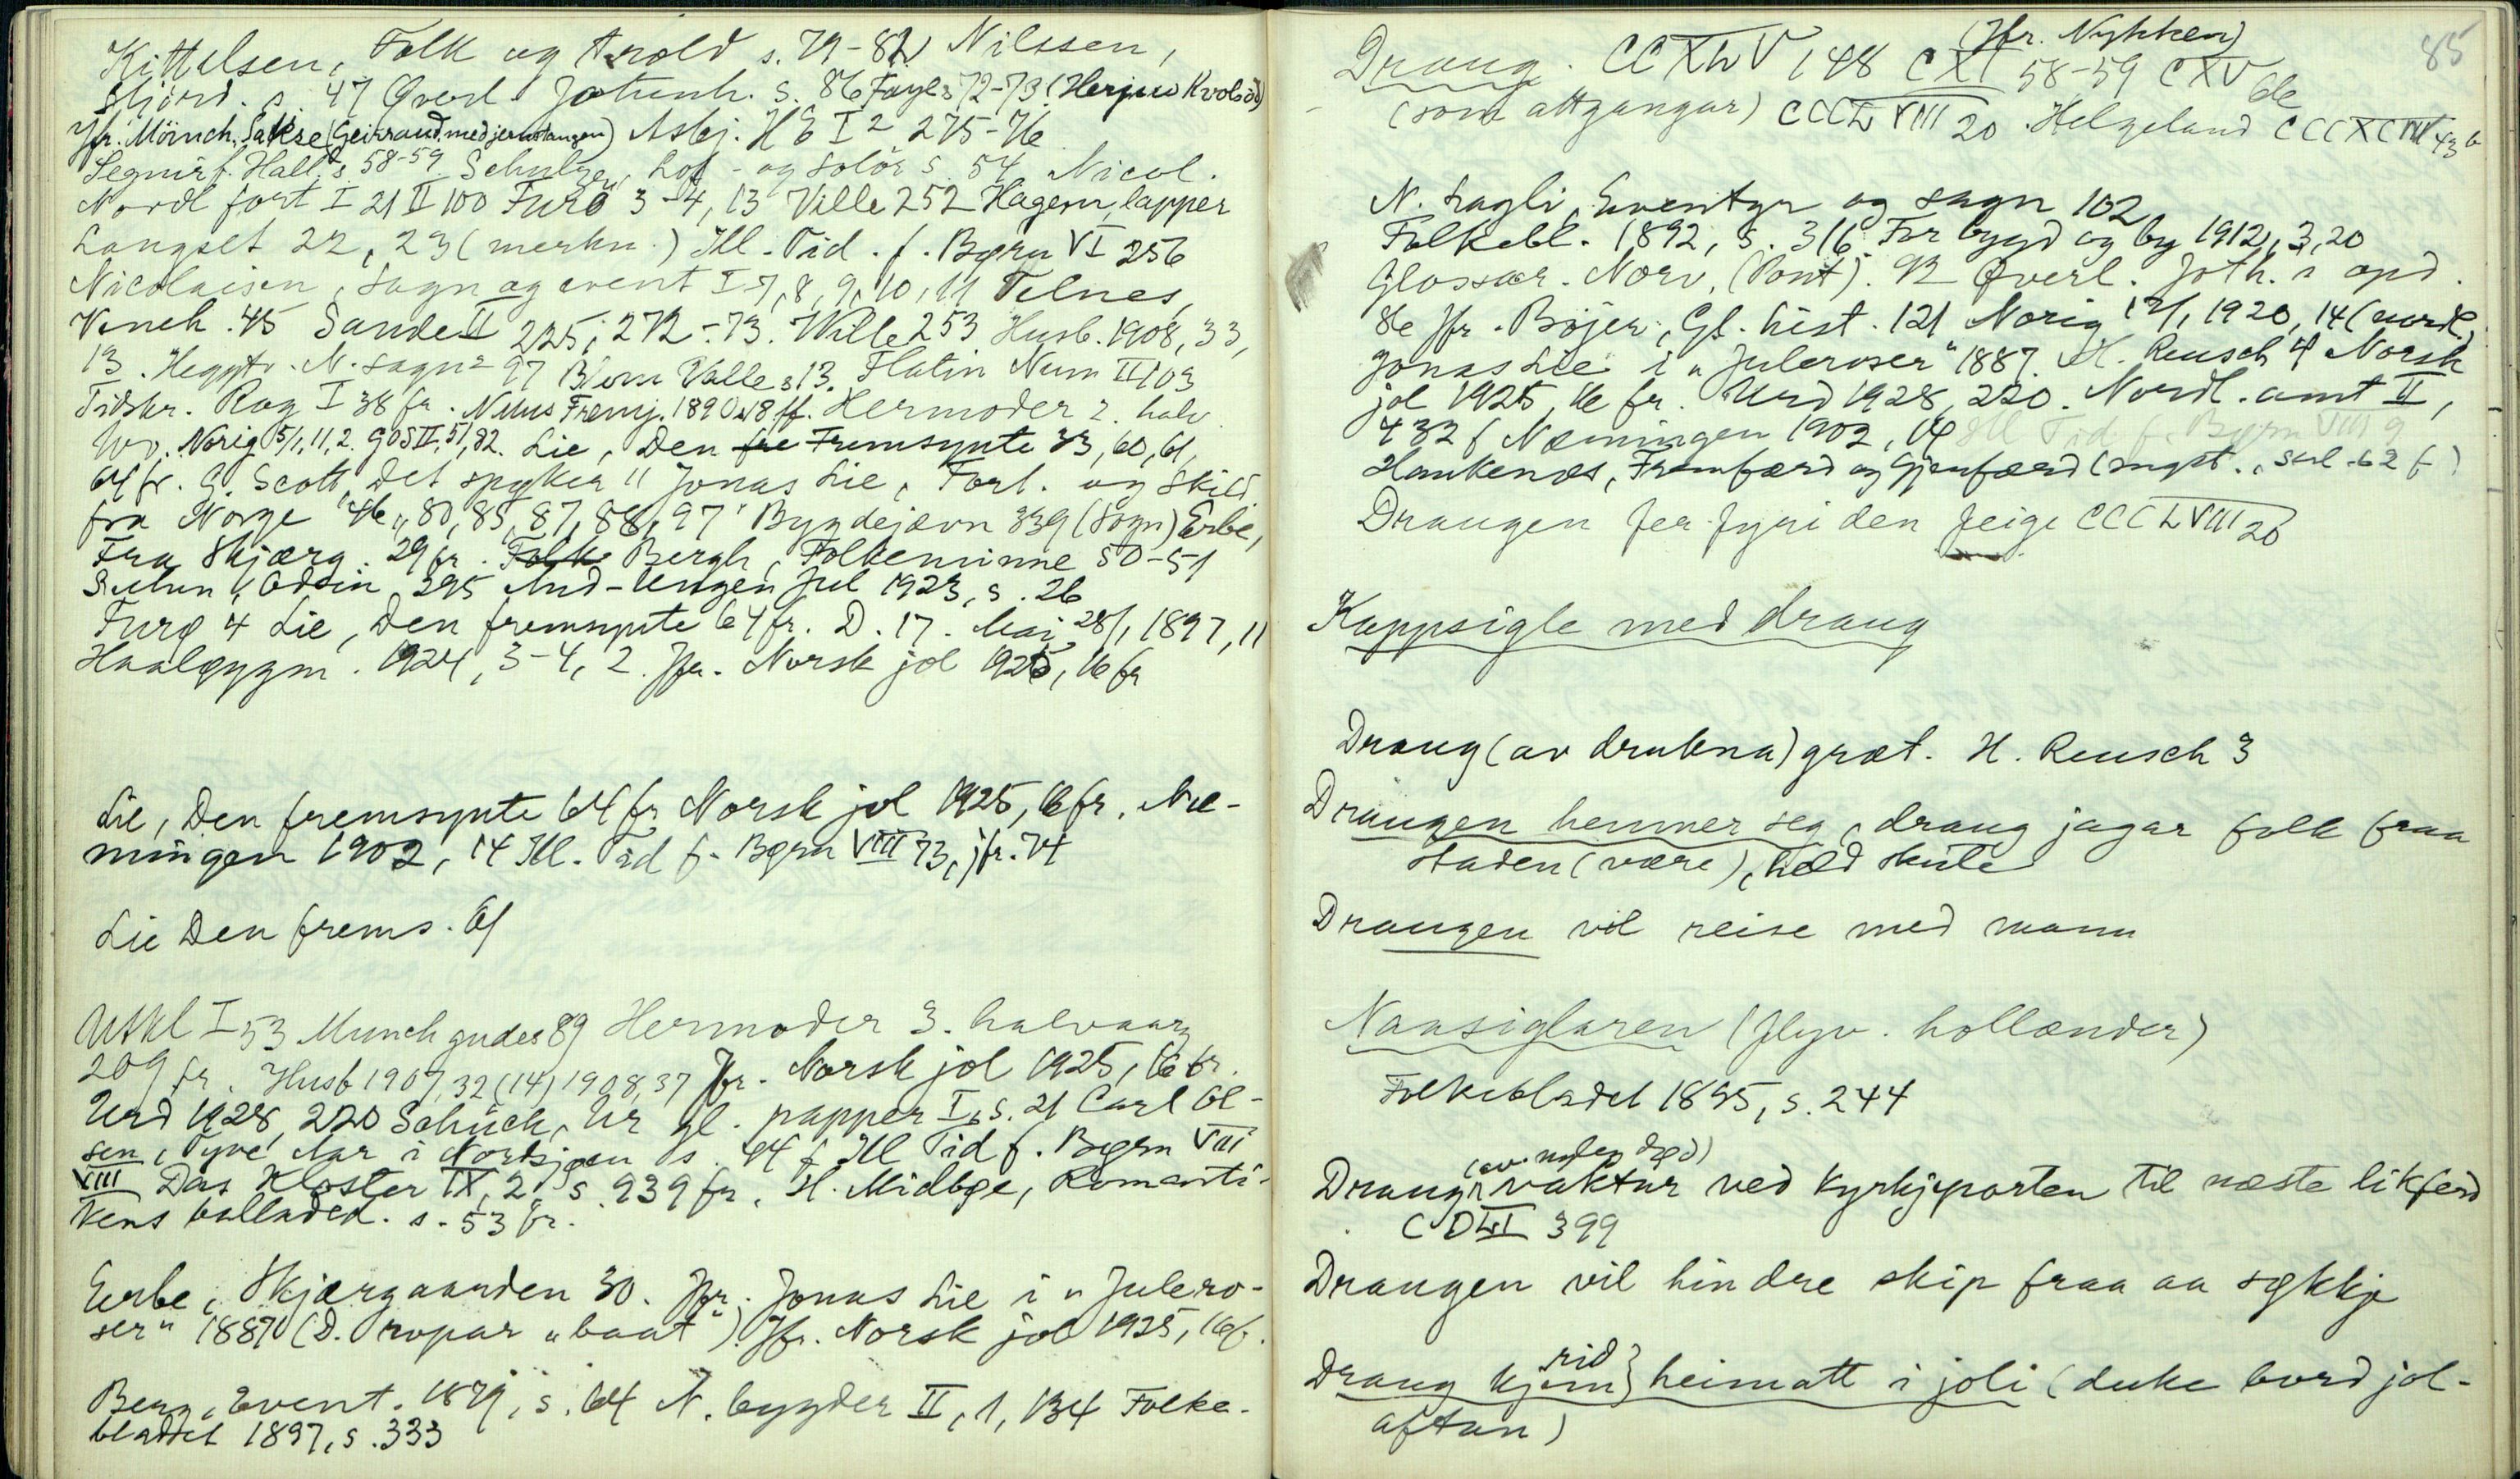 Kittelsen, Folk og trold s. 79-82 Nilssen,
Skjörd. s. 47 Qverl. Jotunh. s. 86 Faye s 72-73
Jfr. Mörnch. Sakse (Geirraud med jernstangen) Asbj. H E I 2 275-76
Segnir f. Hall. s 58-59. Schulze, Lof- og Solör s. 54 Nicol.
Nordl fort I 21 II 100 Furø 3-4, 13 Ville 252 Hagem, lapper
Langset 22, 23 (merkn.) Ill. Tid. f. Børn VI 256
Nicolaisen, Sagn og event I 7, 8, 9, 10, 11 Telnes,
Vench. 45 Sande II 225, 272-73. Wille 253 Husb. 1908, 33,
13. Heggtv. N. sagn 97 Blom Valle s 13. Flatin Num II 103
Tidskr. Rag I 38 fr. Nilus Fremj. 1890 s 18 ff. Hermoder 2. halv
Norig 5/1, 11, 2. GOS II, 51, 82. Lie, Den fre Fremsynte 33, 60, 61,
64 fr. G. Scott, Det spøker 11 Jonas Lie, Fort. og Skild
fra Norge 46, 80, 85, 87, 88, 97 Bygdejævn 339 (Sogn) Erbe,
Fra Skjærg. 29 fr. Folke Bergh, Folkeminne 50-51
Odsin 295 And-Ungen Jul 1923, s. 26
Furø 4 Lie, Den fremsynte 64 fr. D. 17. Mai 28/1 1897, 11
Haaløygm. 1924, 3-4, 2. Jfr. Norsk jol 1925, 16 fr
Lie, Den fremsynte 64 fr Norsk jol 1925, 16 fr. Næ-
ningen 1902, 14 Ill. Tid f. Børn VIII 73, jfr. 74
Lie Den frems. 61
Utkl I 53 Munch gudes 89 Hermoder 3. halvaarg
209 fr. Husb 1907, 32 (14) 1908, 37 Jfr. Norsk jol 1925, 16 fr.
Urd 1928, 220 Schück, Ur gl. papper I, s. 21 Carl Ol-
sen, Tyve Aar i Nordsjøen s. 44 f Ill Tid f. Børn VIII
VIII Das Kloster IX, 2, s. 939 fr. H. Midbøe, Romanti-
kens balladed. s. 53 fr.
Erbe, Skjærgaarden 30. Jfr. Jonas Lie i "Julero-
ser" 1887 (D. ropar "baat"). Jfr. Norsk jol 1925, 16 fr.
Berg, Event. 1879, s. 64 N. bygder II, 1, 134 Folke-
bladet 1897, s. 333
85
(Jfr. Nykken)
Draug. CCXLV 148 CXI 58-59 CXV 6e
(som attgangar) CCCLVIII 20 Helgeland CCCXCVIII 43 b
N. Lagli, Eventyr og sagn 102
Folkebl. 1892, s. 316 For bygd og by 1912, 3, 20
Glossar. Norv. (Pont). 92 Qverl. Joth. s apd.
86 Jfr. Böjer, Gl. hist. 121 Norig 12/1 1920, 14 (nordl.)
Jonas Lie i "Juleroser" 1887. H. Reusch 4 Norsk
jol 1925, 16 fr. Urd 1928, 220. Nordl. amt II,
432 f Næningen 1902, 14 Ill Tid f. Børn VIII 9
Haukenæs, Fremfærd og Gjenfærd (angst., sml. 62 f)
Draugen fer fyri den feige CCCLVIII 20
Kappsigle med draug
Draug (av drukna) græt. H. Reusch 3
Draugen hemner seg, draug jagar folk fraa
staden (være), held skute
Draugen vil reise med mann
Naasiglaren (flyv. hollænder)
Folkebladet 1895, s. 244
(av nylog død)
Draugr vaktar ved kyrkjeporten til næste likferd
CDLI 399
Draugen vil hindre skip fraa aa søkkje
rid
Draug kjem} heimatt i joli (duke bord jol-
aftan)